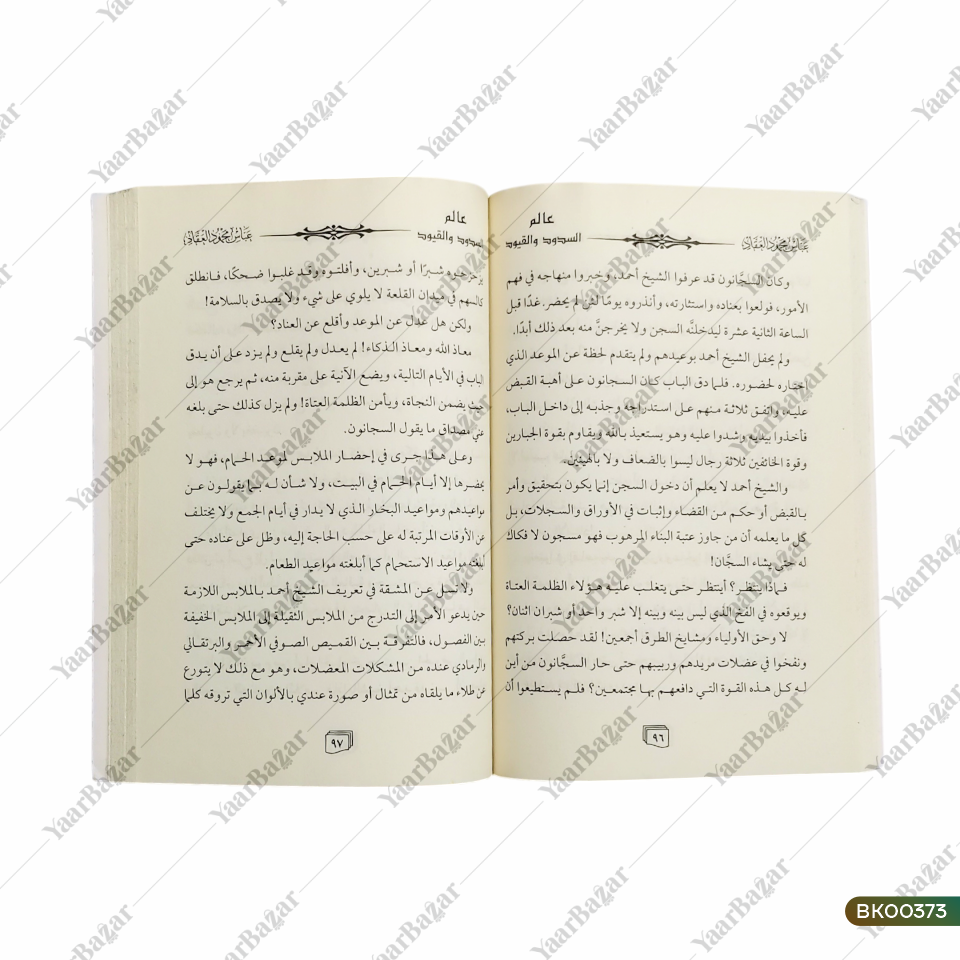 عالم
السدود والقيود
عباس محمود العقاد
وكان السجَّانون قد عرفوا الشيخ أحمد، وخبروا منهاجه في فهم
الأمور، فولعوا بعناده واستثارته، وأنذروه يومًا لئن لم يحضر غدًا قبل
الساعة الثانية عشرة ليدخلنَّه السجن ولا يخرجنَّ منه بعد ذلك أبدًا.
ولم يحفل الشيخ أحمد بوعيدهم ولم يتقدم لحظة عن الموعد الذي
اختاره لحضوره. فلما دق الباب كان السجانون على أهبة القبض
عليه، واتفق ثلاثة منهم على استدراجه وجذبه إلى داخل الباب،
فأخذوا بيديه وشدوا عليه وهو يستعيذ بالله ويقاوم بقوة الجبارين
وقوة الخائفين ثلاثة رجال ليسوا بالضعاف ولا بالهينين.
والشيخ أحمد لا يعلم أن دخول السجن إنما يكون بتحقيق وأمر
بالقبض أو حكم من القضاء وإثبات في الأوراق والسجلات، بل
كل ما يعلمه أن من جاوز عتبة البناء المرهوب فهو مسجون لا فكاك
له حتى يشاء السجَّان!
فماذا ينتظر؟ أينتظر حتى يتغلب عليه هؤلاء الظلمة العتاة
ويوقعوه في الفخ الذي ليس بينه وبينه إلا شبر واحد أو شبران اثنان؟
لا وحق الأولياء ومشايخ الطرق أجمعين! لقد حصلت بركتهم
ونفخوا في عضلات مريدهم وربيبهم حتى حار السجَّانون من أين
له كل هذه القوة التي دافعهم بها مجتمعين؟ فلم يستطيعوا أن
٩٦
عالم
السدود والقيود
عباس محمود العقاد
يزحزحوه شبرًا أو شبرين، وأفلتوه وقد غلبوا ضحكًا، فانطلق
كالسهم في ميدان القلعة لا يلوي على شيء ولا يصدق بالسلامة!
ولكن هل عدل عن الموعد وأقلع عن العناد؟
معاذ الله ومعاذ الذكاء! لم يعدل ولم يقلع ولم يزد على أن يدق
الباب في الأيام التالية، ويضع الآنية على مقربة منه، ثم يرجع هو إلى
حيث يضمن النجاة، ويأمن الظلمة العتاة! ولم يزل كذلك حتى بلغه
عني مصداق ما يقول السجانون.
وعلى هذا جرى في إحضار الملابس لموعد الحمام، فهو لا
يحضرها إلا أيام الحمام في البيت، ولا شأن له بما يقولون عن
مواعيدهم ومواعيد البخار الذي لا يدار في أيام الجمع ولا يختلف
عن الأوقات المرتبة له على حسب الحاجة إليه، وظل على عناده حتى
أبلغته مواعيد الاستحمام كما أبلغته مواعيد الطعام.
ولا تسل عن المشقة في تعريف الشيخ أحمد بالملابس اللازمة
حين يدعو الأمر إلى التدرج من الملابس الثقيلة إلى الملابس الخفيفة
بين الفصول، فالتفرقة بين القميص الصوفي الأحمر والبرتقالي
والرمادي عنده من المشكلات المعضلات، وهو مع ذلك لا يتورع
عن طلاء ما يلقاه من تمثال أو صورة عندي بالألوان التي تروقه كلما
٩٧
YaarBazar
BK00373